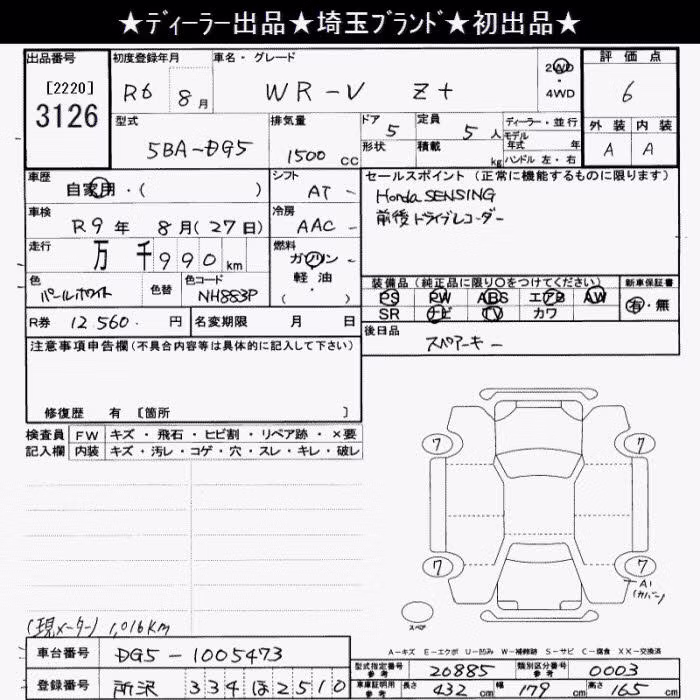 ★ディーラー出品★埼玉ブランド★初出品★
出品番号 初度登録年月 車名・グレード 評価点
[2220] R6 8月 WR-V Z+ 2WD・4WD 6
3126
型式 排気量 ドア 5 定員 5人 ディーラー・並行 外装 内装
5BA-DG5 1500cc 形状 積載 kg モデル年式 年 A A
ハンドル 左・右
車歴 シフト セールスポイント(正常に機能するものに限ります)
自家用・( ) AT- Honda SENSING
車検 冷房 前後ドライブレコーダー
R9年 8月(27日) AAC-
走行 燃料
万千990km ガソリン・軽油・( )
色 色替 色コード 装備品(純正品に限り○をつけてください) 新車保証書
パールホワイト NH883P PS PW ABS エアB AW 有・無
SR ナビ TV カワ
R券 12,560.円 名変期限 月 日 後日品
スペアーキー
注意事項申告欄(不具合内容等は具体的に記入して下さい)
修復歴 有 [箇所 ]
検査員 FW キズ・飛石・ヒビ割・リペア跡・×要
記入欄 内装 キズ・汚レ・コゲ・穴・スレ・キレ・破レ
7 7
7 7
A1
(カバー)
スペア
(現メーター) 1,016KM
A-キズ E-エクボ U-凹み W-補修跡 S-サビ C-腐食 XX-交換済
車台番号 DG5-1005473
型式指定番号 参考 20885 類別区分番号 参考 0003
登録番号 所沢 334ほ2510
車庫証明用 参考 長さ 432cm 幅 179cm 高さ 165cm